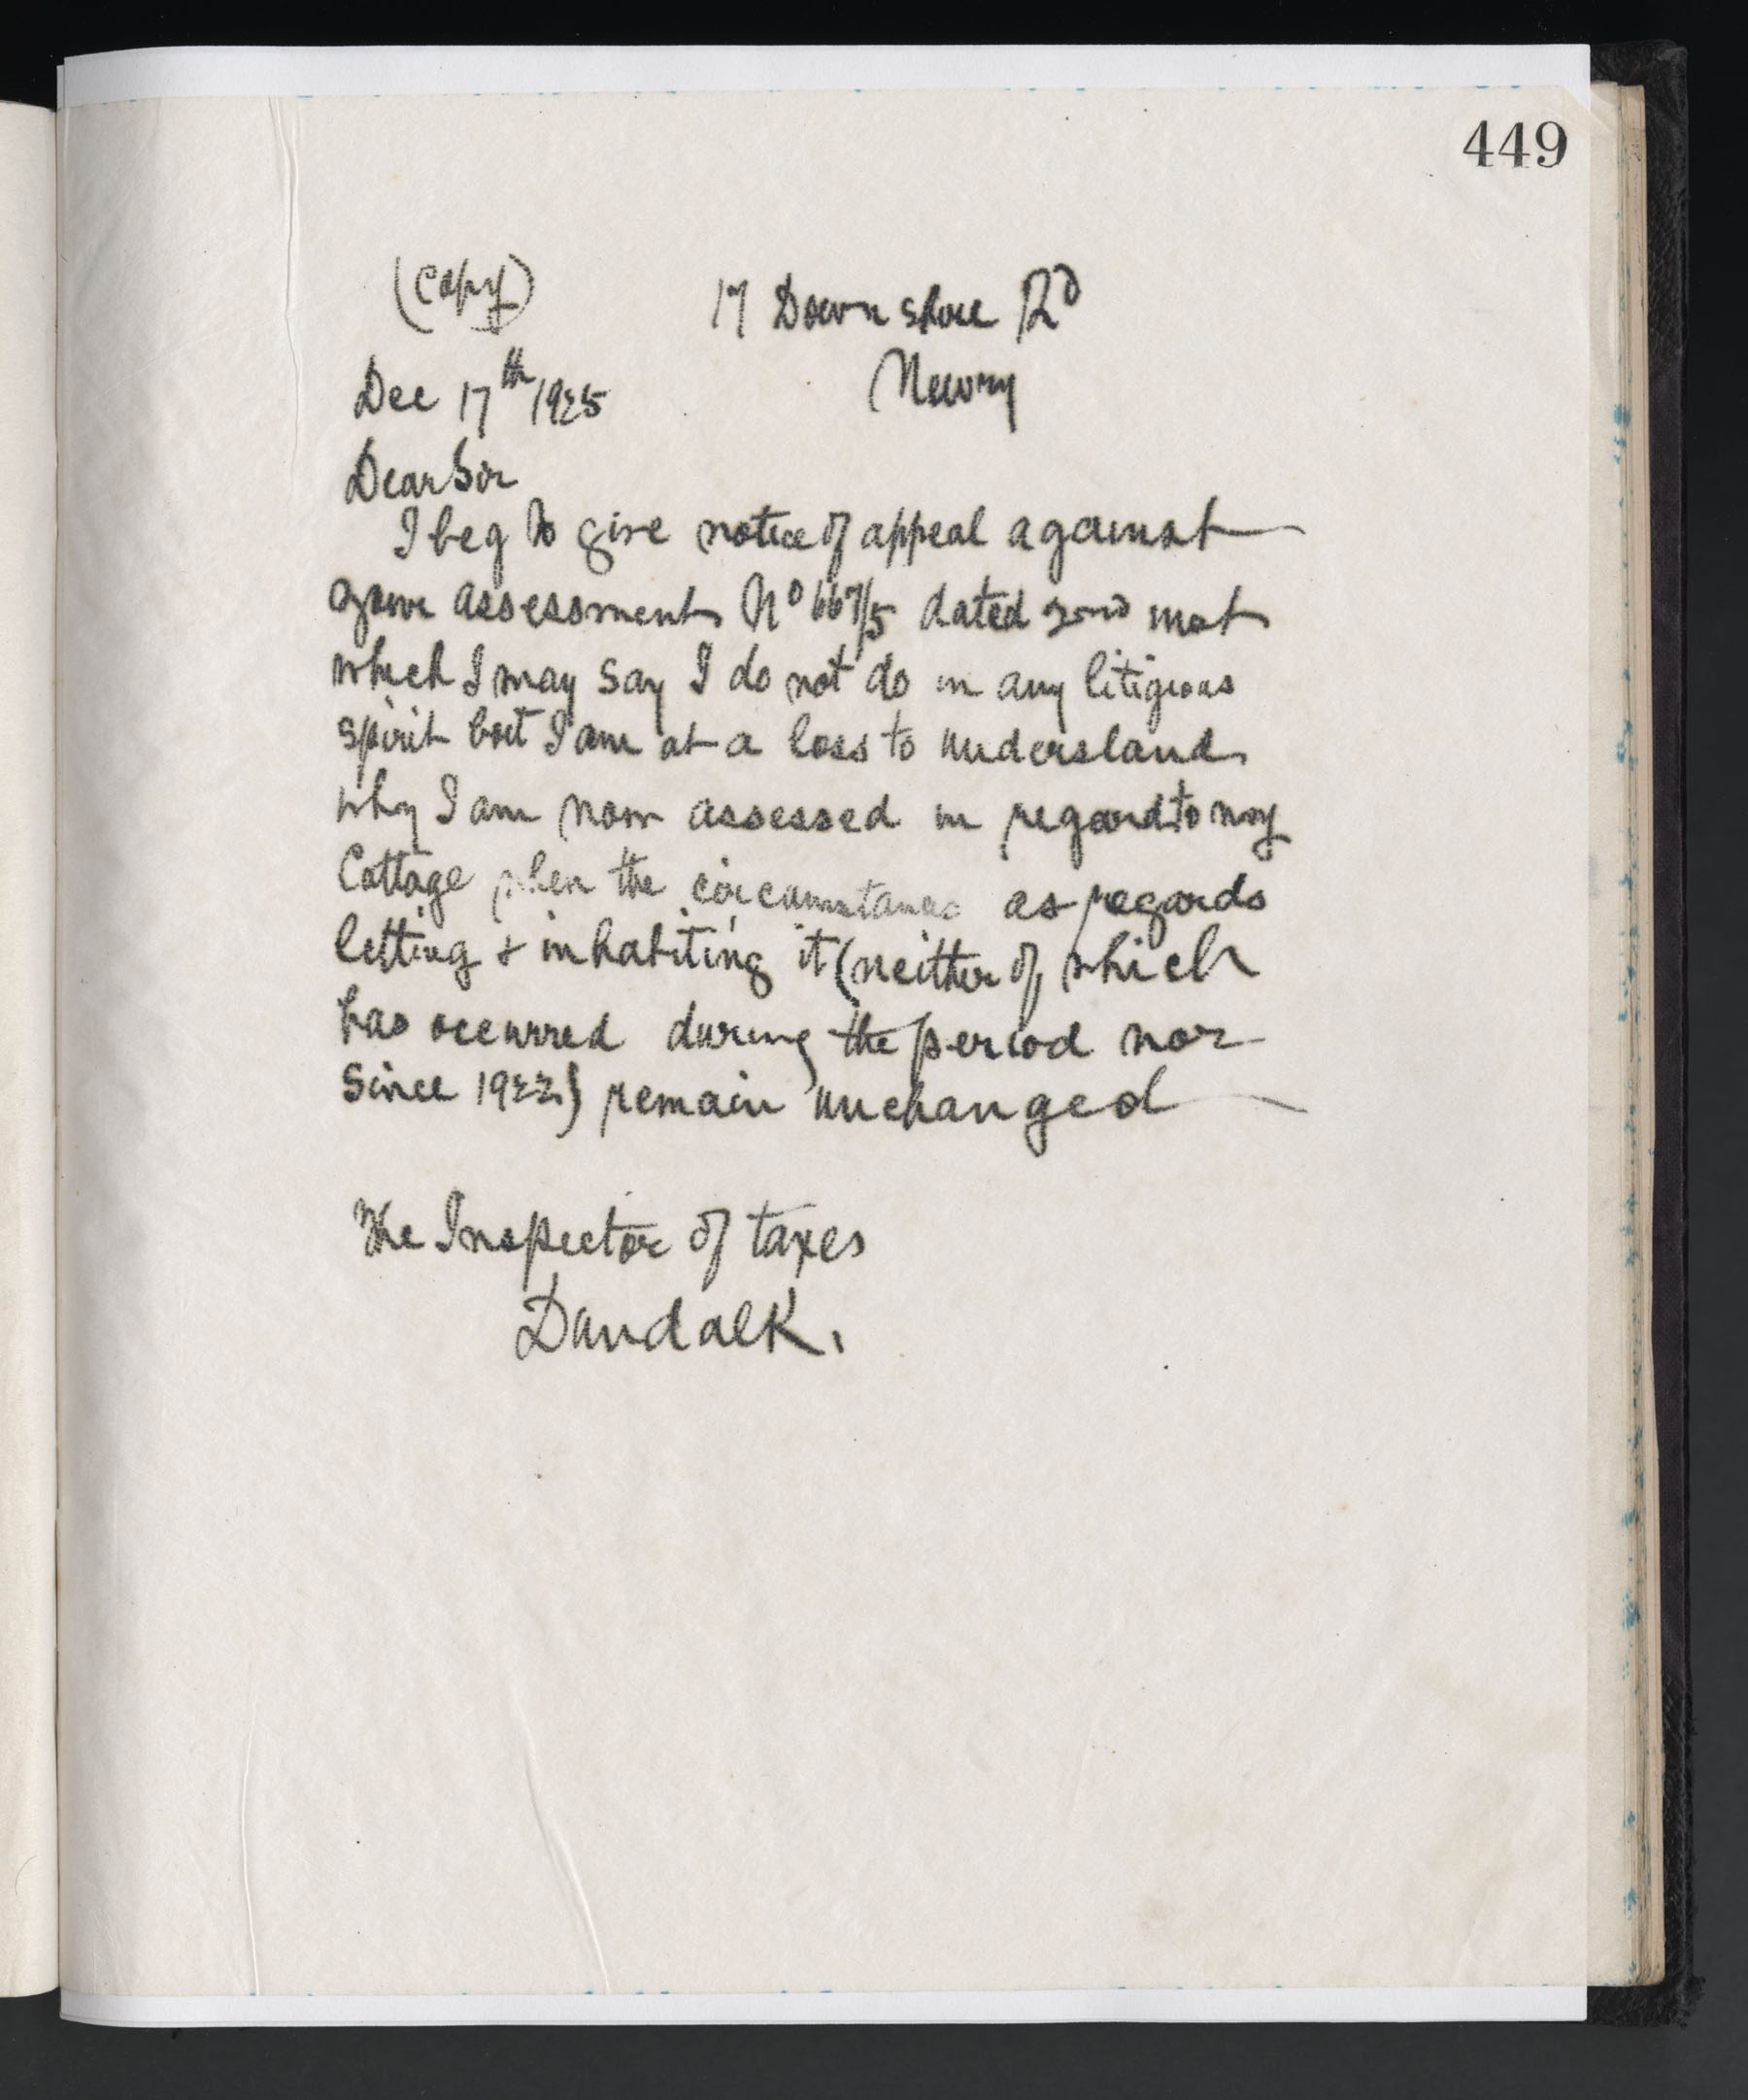 449
(Copy) 17 Downshire Rd
Newry
Dec 17th 1925
Dear Sir
I beg to give notice of appeal against
your assessment No 667/5 dated 2nd inst
which I may say I do not do in any litigious
spirit but I am at a loss to understand
why I am now assessed in regard to my
Cottage when the circumstances as regards
letting + inhabiting it (neither of which
has occurred during the period nor
since 1922) remain unchanged
The Inspector of taxes
Dundalk.